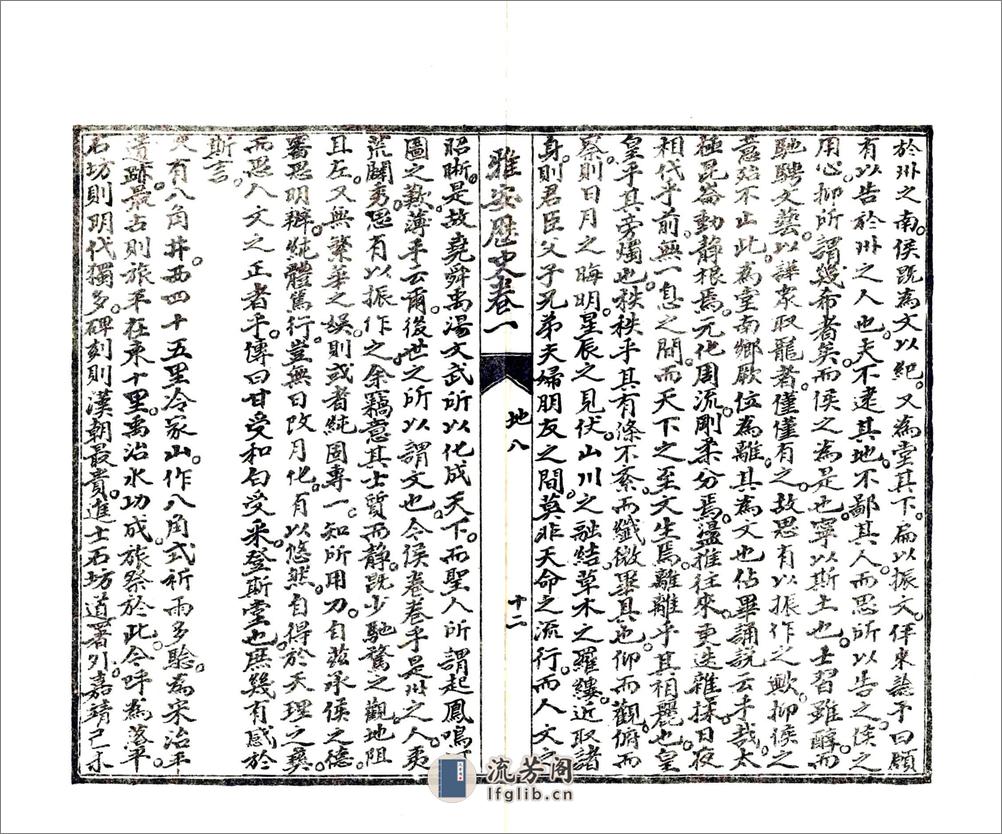 於州之南侯既為文以紀又為堂其下扁以振文伻來諗予曰願
有以告於州之人也夫不違其地不鄙其人而思所以告之侯之
用心抑所謂幾希者矣而侯之為是也寧以斯土也士習雖醇而
馳騁文藝以譁眾取寵者僅僅有之故思有以振作之歟抑侯之
意殆不止此為堂南鄉厥位為離其為文也佔畢誦說云乎哉太
極昆崙動靜根焉元化周流剛柔分焉盪推往來更迭雜揉日夜
相代乎前無一息之間而天下之至文生焉離離乎其相麗也皇
皇乎其旁燭也秩秩乎其有條不紊而纖微畢具也仰而觀俯而
察則日月之晦明星辰之見伏山川之融結草木之羅縷近取諸
身則君臣父子兄弟夫婦朋友之間莫非天命之流行而人文之
雅安歷史卷一
地八
十二
昭晰是故堯舜禹湯文武所以化成天下而聖人所謂起鳳鳴
圖之歎薄乎云爾後世之所以謂文也今侯卷卷乎是州之人夷
荒闢秀思有以振作之余竊意其士質而靜既少馳騖之觀地阻
且左又無繁華之娛則或者純固專一知所用力自茲承侯之德
審思明辨純體篤行豈無日改月化有以悠然自得於天理之彝
而思人文之正者乎傳曰甘受和白受采登斯堂也庶幾有感於
斯言
又有八角井西四十五里冷家山作八角式祈雨多驗為宋治平
遺跡最古則旅平在東十里禹治水功成旅祭於此今呼為落平
石坊則明代獨多碑刻則漢朝最貴進士石坊道署外嘉靖己未
流芳阁
lfglib.cn